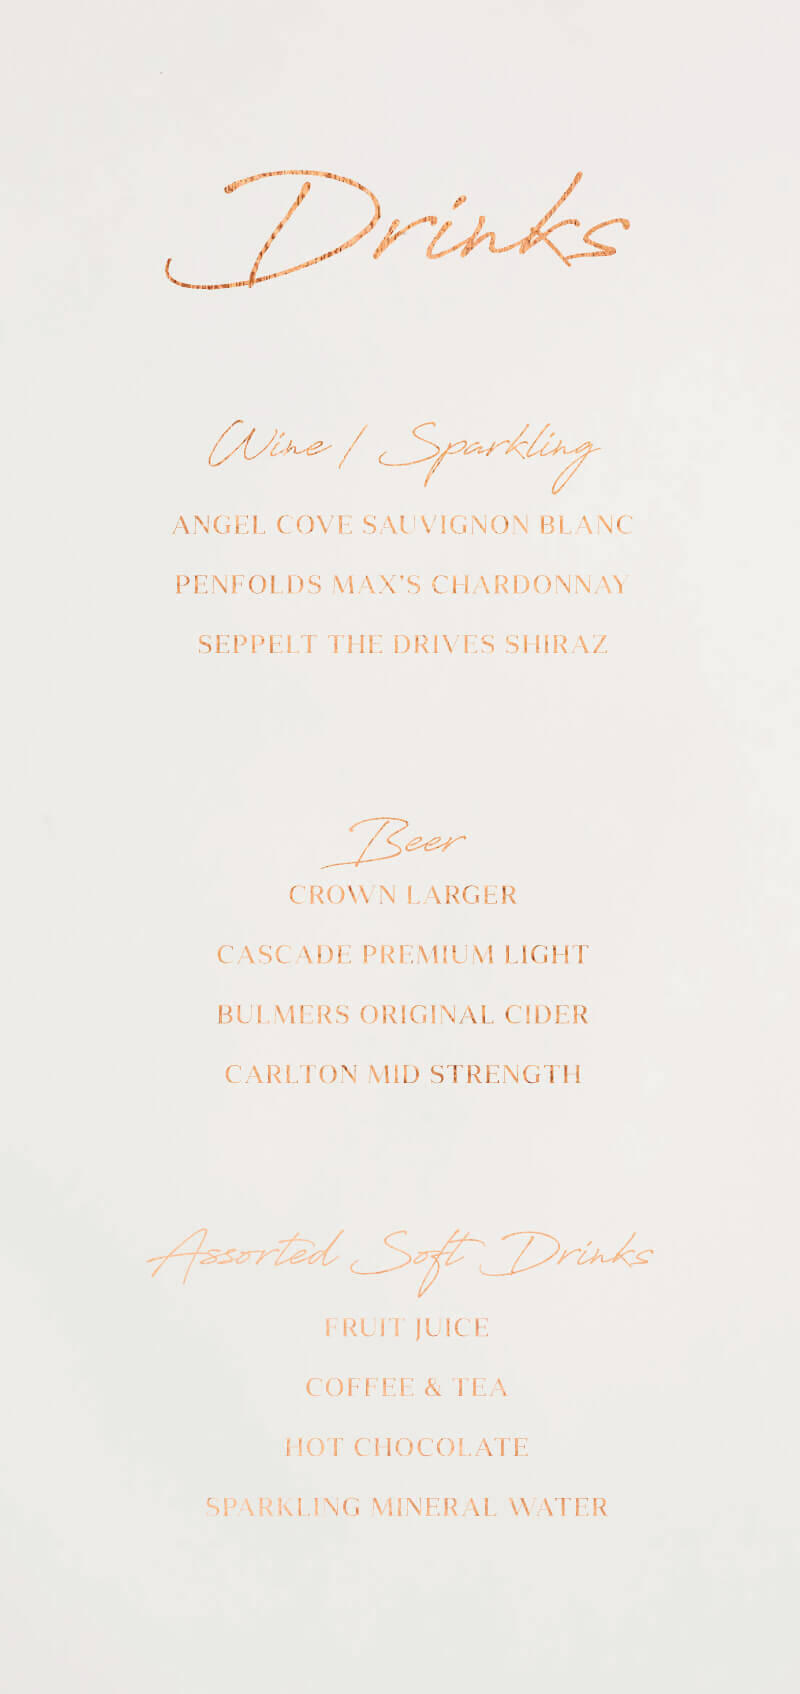 Drinks
Wine / Sparkling
ANGEL COVE SAUVIGNON BLANC
PENFOLDS MAX'S CHARDONNAY
SEPPELT THE DRIVES SHIRAZ
Beer
CROWN LARGER
CASCADE PREMIUM LIGHT
BULMERS ORIGINAL CIDER
CARLTON MID STRENGTH
Assorted Soft Drinks
FRUIT JUICE
COFFEE & TEA
HOT CHOCOLATE
SPARKLING MINERAL WATER